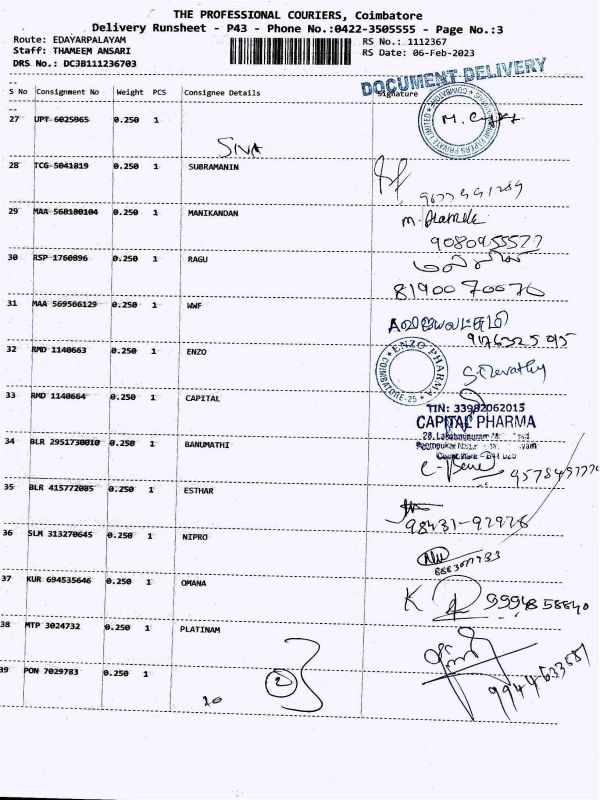 THE PROFESSIONAL COURIERS, Coimbatore
Delivery Runsheet - P43 - Phone No.:0422-3505555 - Page No.:3
Route: EDAYARPALAYAM RS No.: 1112367
Staff: THAMEEM ANSARI RS Date: 06-Feb-2023
DRS No.: DCJB111236703
DOCUMENT DELIVERY
S No Consignment No Weight PCS Consignee Details Signature
27 UPT 6025965 0.250 1
SIVA
28 TCG 5041819 0.250 1 SUBRAMANIN
29 MAA 568180104 0.250 1 MANIKANDAN
9080955522
30 RSP 1760896 0.250 1 RAGU
8190070070
31 MAA 569566129 0.250 1 WWF
32 RMD 1140663 0.250 1 ENZO
ENZO PHARMA
COIMBATORE-25
S. Revathy
33 RMD 1140664 0.250 1 CAPITAL
TIN: 33982062015
CAPITAL PHARMA
34 BLR 2951730010 0.250 1 BANUMATHI
35 BLR 415772085 0.250 1 ESTHAR
98431-92928
36 SLM 313270645 0.250 1 NIPRO
37 KUR 694535646 0.250 1 OMANA
K 9994858840
38 MTP 3024732 0.250 1 PLATINAM
39 PON 7029783 0.250 1
20 2